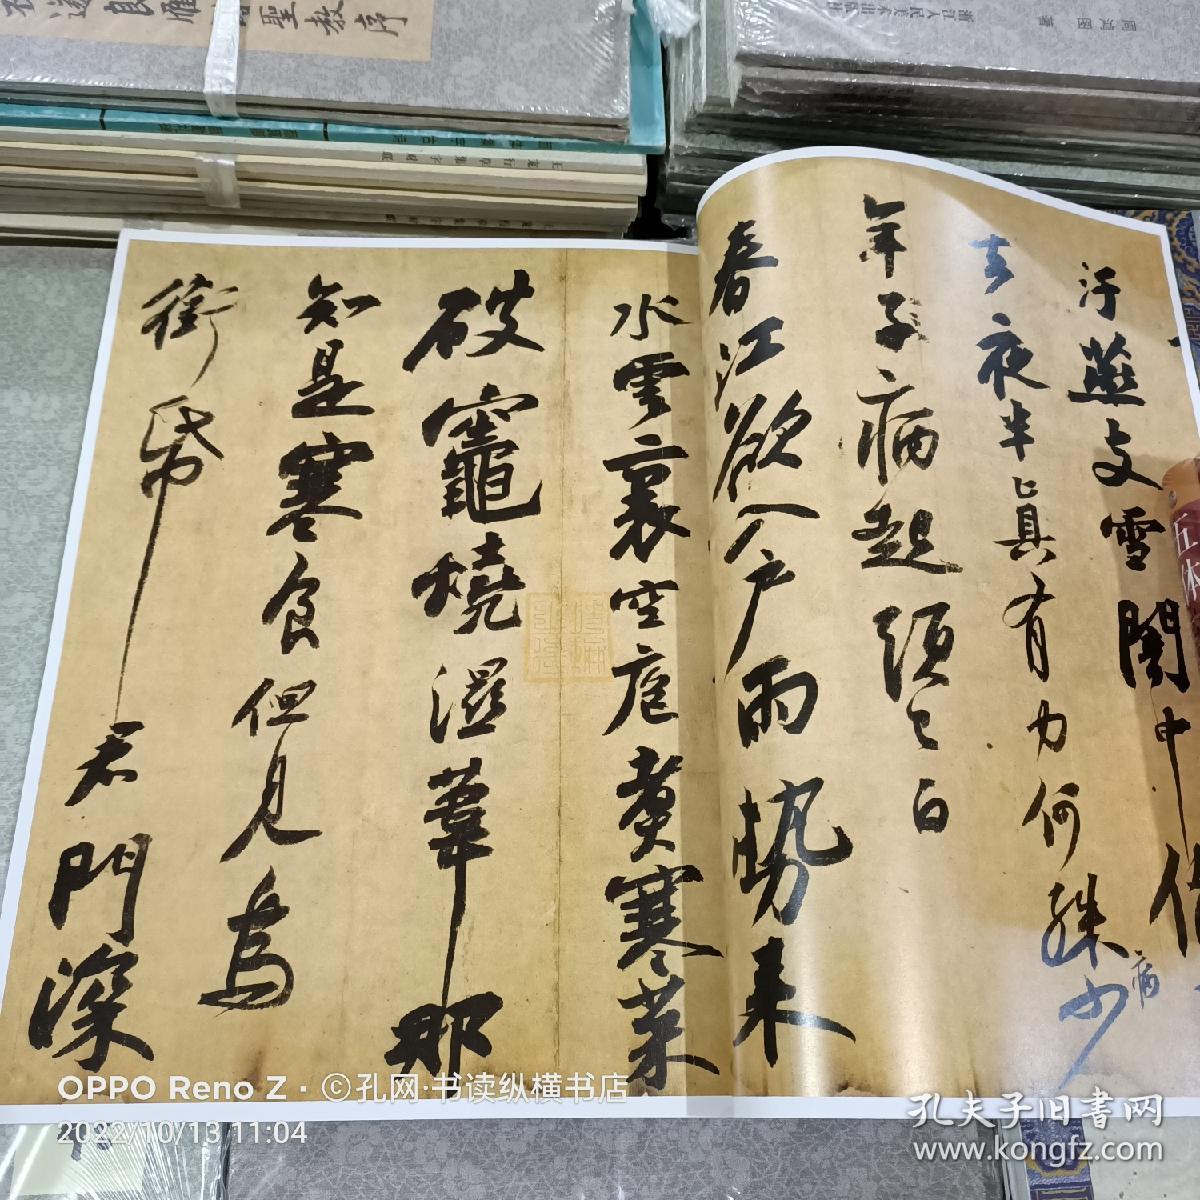 汙燕支雪闇中偷
去夜半真有力何殊少
病
年子病起須已白
春江欲入戶雨勢來
水雲裏空庖煮寒菜
破竈燒濕葦那
知是寒食但見烏
銜帋君門深
聖教序
浙江人民美術出版社
五体
OPPO Reno Z · ©孔网·书读纵横书店
2022/10/13 11:04
孔夫子旧书网
www.kongfz.com